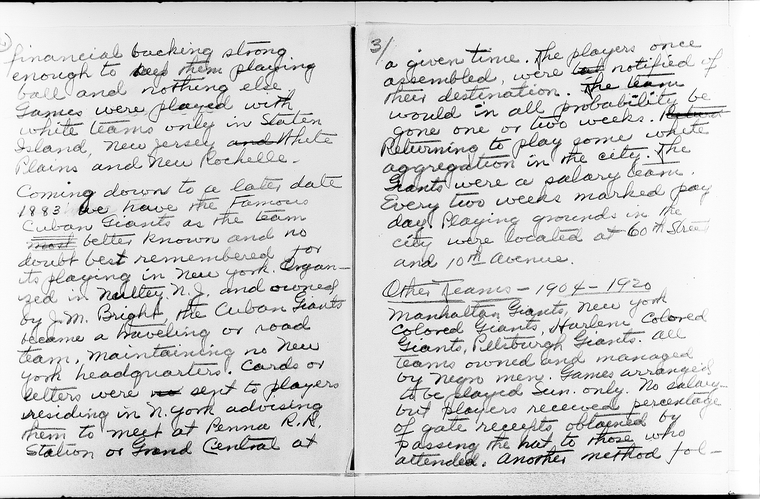 financial backing strong
enough to keep them playing
ball and nothing else
Games were played with
white teams only in Staten
Island, New Jersey and White
Plains and New Rochelle.
Coming down to a later date
1883 we have the Famous
Cuban Giants as the team
most better known and no
doubt best remembered for
its playing in New York. Organ-
ized in Nutley N.J. and owned
by J.M. Bright, the Cuban Giants
became a traveling or road
team, maintaining no New
York headquarters. Cards or
letters were sent to players
residing in N.York advising
them to meet at Penna R.R.
Station or Grand Central at
3/
a given time. The players once
assembled, were notified of
their destination. The team
would in all probability be
gone one or two weeks.
Returning to play some white
aggregation in the city. The
Giants were a salary team.
Every two weeks marked pay
day. Playing grounds in the
city were located at 60th Street
and 10th Avenue.
Other Teams - 1904 - 1920
Manhattan Giants, New York
Colored Giants, Harlem Colored
Giants, Pittsburgh Giants. all
teams owned and managed
by Negro men. Games arranged
to be played Sun. only. No salary-
but players received percentage
of gate receipts obtained by
passing the hat to those who
attended. Another method fol-